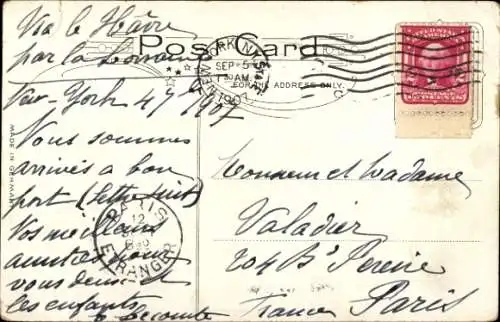 Via le Hâvre
par la Lorraine
New-York 4/9 1907
Vous sommes
arrivés à bon
port (lettre suit)
Vos meilleurs
amitiés pour
vous deux et
les enfants
Lecomte
Post Card
FOR THE ADDRESS ONLY.
NEW YORK, N.Y.
SEP 5
1907
MADE IN GERMANY
PARIS
12
ETRANGER
Monsieur et Madame
Valadier
204 Bd Pereire
France Paris